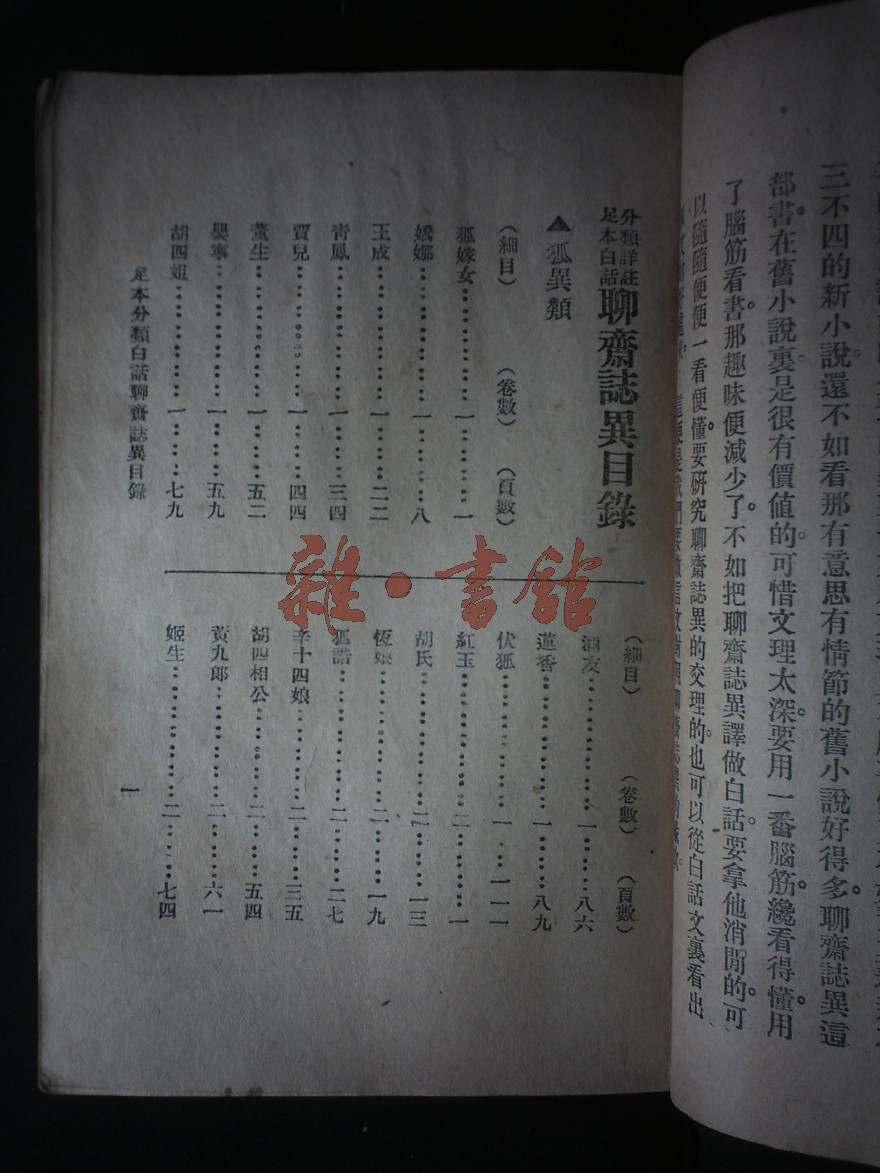 三不四的新小說還不如看那有意思有情節的舊小說好得多。聊齋誌異這
部書在舊小說裏是很有價值的。可惜文理太深。要用一番腦筋。纔看得懂。用
了腦筋看書。那趣味便減少了。不如把聊齋誌異譯做白話。要拿他消閒的。可
以隨隨便便一看便懂。要研究聊齋誌異的文理的。也可以從白話文裏看出
分類詳註
足本白話
聊齋誌異目錄
▲狐異類
(細目) (卷數) (頁數)
狐嫁女……一……一
嬌娜……一……八
王成……一……二二
青鳳……一……三四
賈兒……一……四四
董生……一……五二
嬰寧……一……五九
胡四姐……一……七九
(細目) (卷數) (頁數)
酒友……一……八六
蓮香……一……八九
伏狐……一……一一一
紅玉……二……一
胡氏……二……一三
恆娘……二……一九
狐諧……二……二七
辛十四娘……二……三五
胡四相公……二……五四
黃九郎……二……六一
姬生……二……七四
足本分類白話聊齋誌異目錄
一
雜·書館